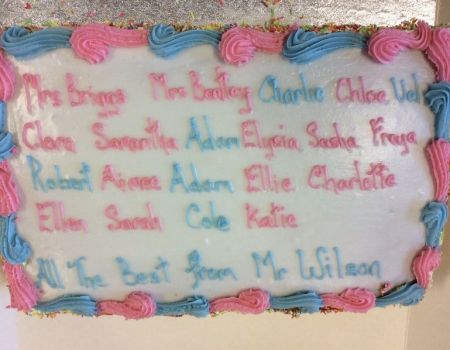 Mrs Briggs Mrs Bentley Charlie Chloe Val
Clara Samantha Adam Elysia Sasha Freya
Robert Aimee Adam Ellie Charlotte
Ellen Sarah Cole Katie
All The Best from Mr Wilson